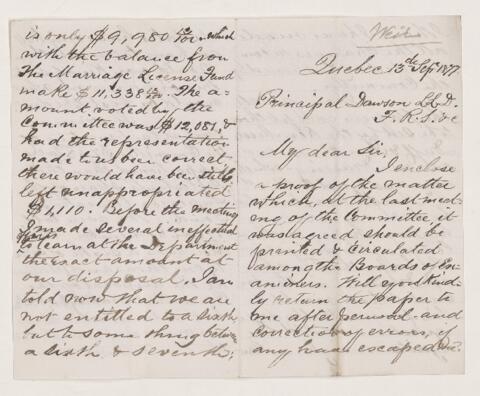 Weir
Quebec 13th Sep 1877
Principal Dawson LL.D.
F.R.S. &c
My dear Sir,
I enclose
a proof of the matter
which, at the last meet-
ing of the Committee, it
was agreed should be
printed & circulated
among the Boards of Ex-
aminers. Will you kind-
ly return the paper to
me after perusal and
correction of errors, if
any have escaped me.
is only $9,980 which
with the balance from
The Marriage License Fund
make $11,338 The a-
mount voted by the
Committee was $12,081, &
had the representation
made to us been correct
there would have been still
left unappropriated
$1,110. Before the meeting
I made several ineffectual
efforts
to learn at the Department
the exact amount at
our disposal, I am
told now that we are
not entitled to a sixth
but to some thing between
a sixth & seventh;